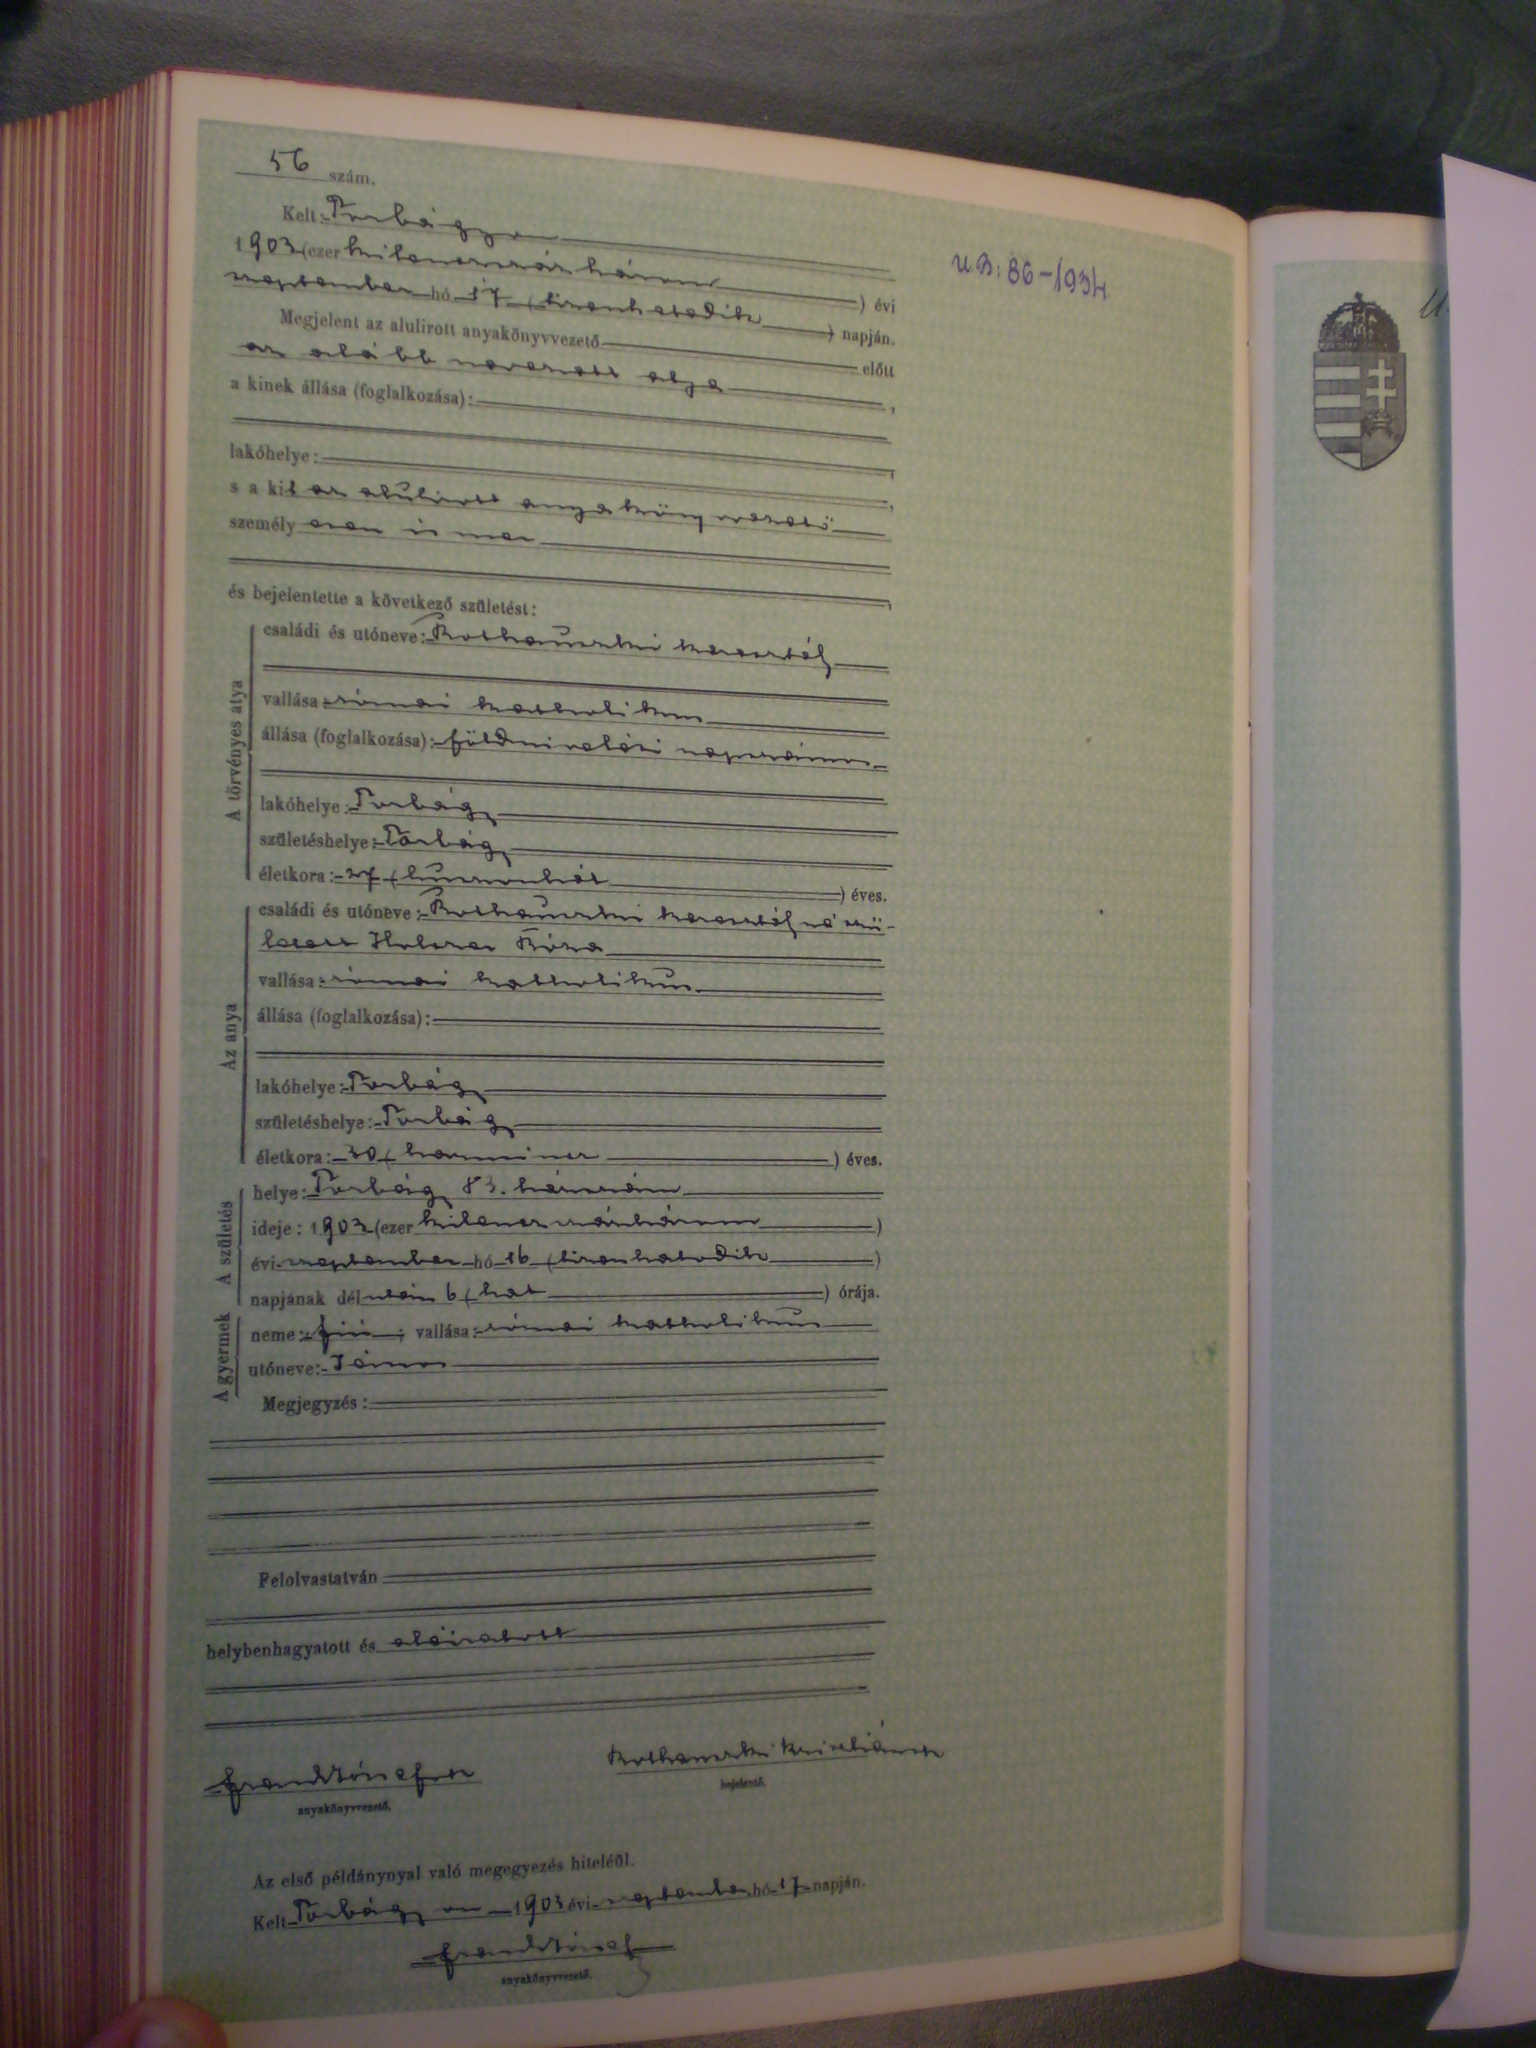 56 szám.
Kelt: Torbágyon
1903 (ezer kilencszázhárom) évi
szeptember hó 17 (tizenhetedik) napján.
Megjelent az alulirott anyakönyvvezető előtt
az alább nevezett atya
a kinek állása (foglalkozása):
lakóhelye:
s a kit az alulirott anyakönyvvezető
személyesen ismer
és bejelentette a következő születést:
A törvényes atya
családi és utóneve: keresztély
vallása: római katholikus
állása (foglalkozása): földmivelési napszámos
lakóhelye: Torbágy
születéshelye: Torbágy
életkora: 27 (huszonhét) éves.
Az anya
családi és utóneve: keresztélyné szü-
letett Holczer Róza
vallása: római katholikus
állása (foglalkozása):
lakóhelye: Torbágy
születéshelye: Torbágy
életkora: 30 (harmincz) éves.
A születés
helye: Torbágy 83. házszám
ideje: 1903 (ezer kilenczszázhárom)
évi szeptember hó 16 (tizenhatodik)
napjának délután 6 (hat) órája.
A gyermek
neme: fiú; vallása: római katholikus
utóneve: János
Megjegyzés:
Felolvastatván
helybenhagyatott és aláiratott
anyakönyvvezető.
bejelentő.
Az első példánynyal való megegyezés hiteléül.
Kelt Torbágyon 1903 évi szeptember hó 17 napján.
anyakönyvvezető.
U.B: 86-1934